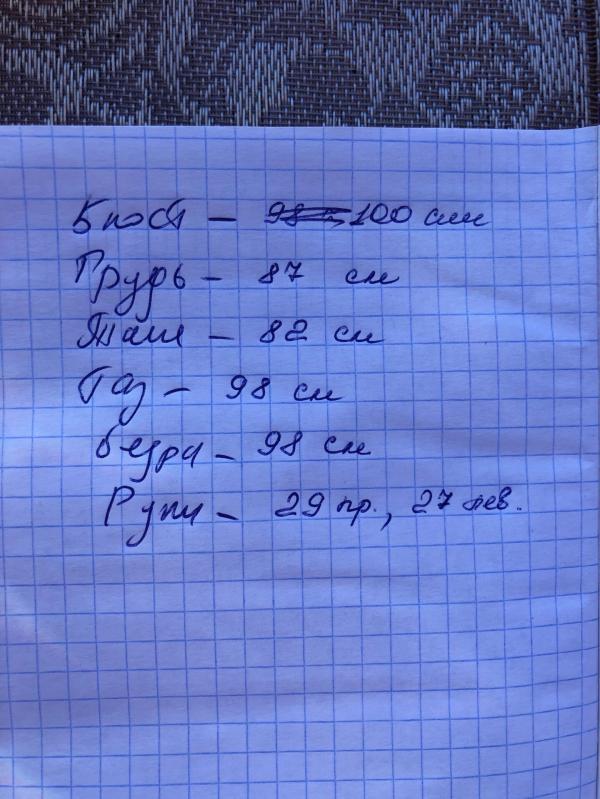 Бюст - 98 100 см
Грудь - 87 см
Талия - 82 см
Таз - 98 см
бедра - 98 см
Руки - 29 пр., 27 лев.